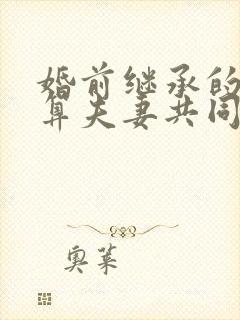 婚前继承的
算夫妻共同
奥莱